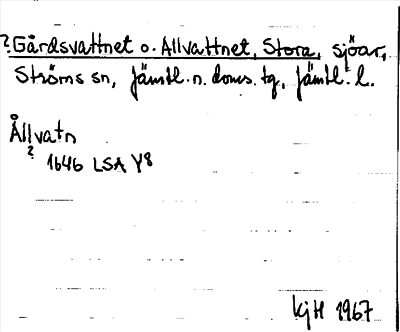 ? Gårdsvattnet o. Allvattnet, Stora, sjöar,
Ströms sn, Jämtl. n. doms. tg, Jämtl. l.
Ållvatn
? 1646 LSA Y8
KjH 1967